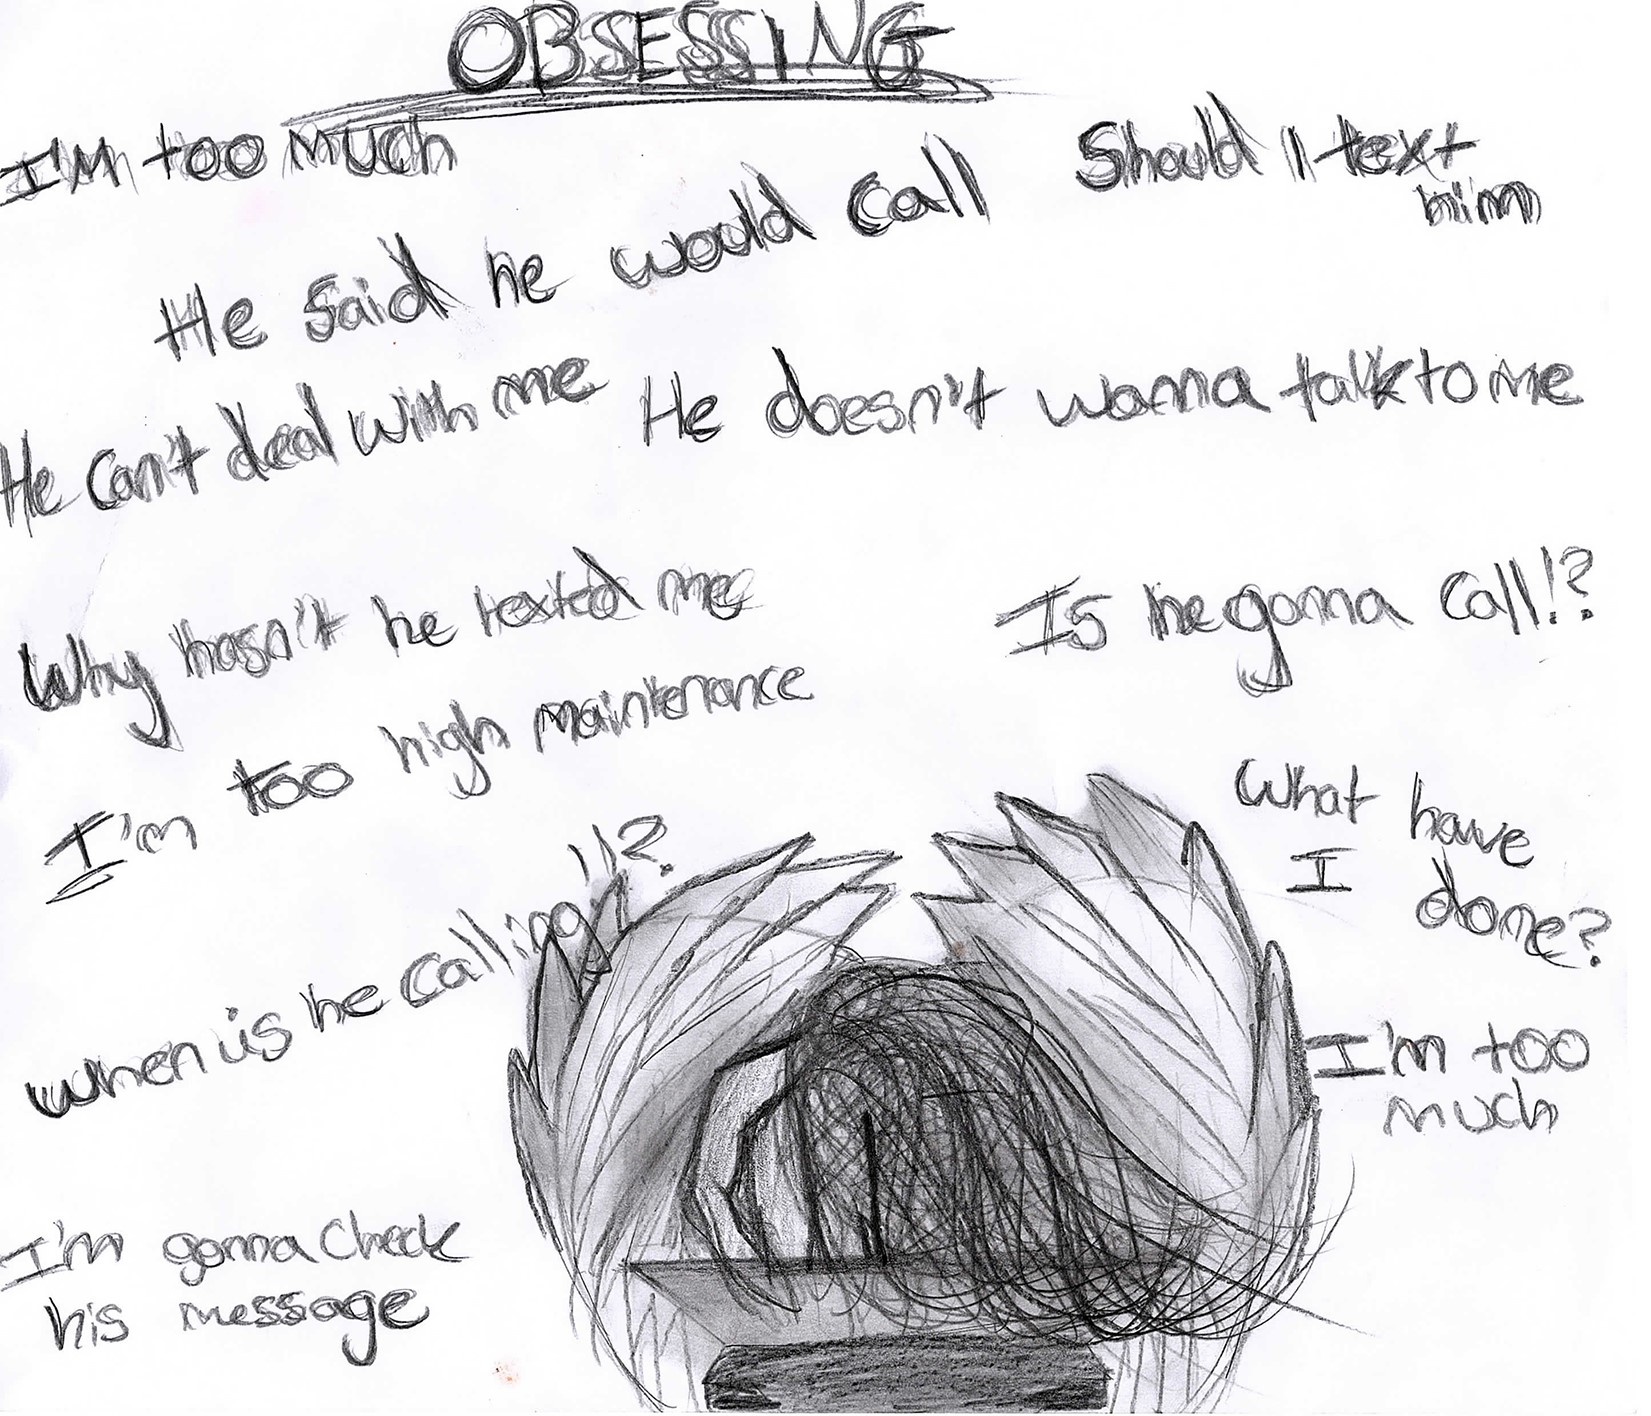 OBSESSING
I'M too much
Should I text
him
He said he would call
He can't deal with me
He doesn't wanna talk to me
Why hasn't he texted me
Is he gonna call!?
I'm too high maintenance
What have
I done?
when is he calling!!?
I'm too
much
I'm gonna check
his message